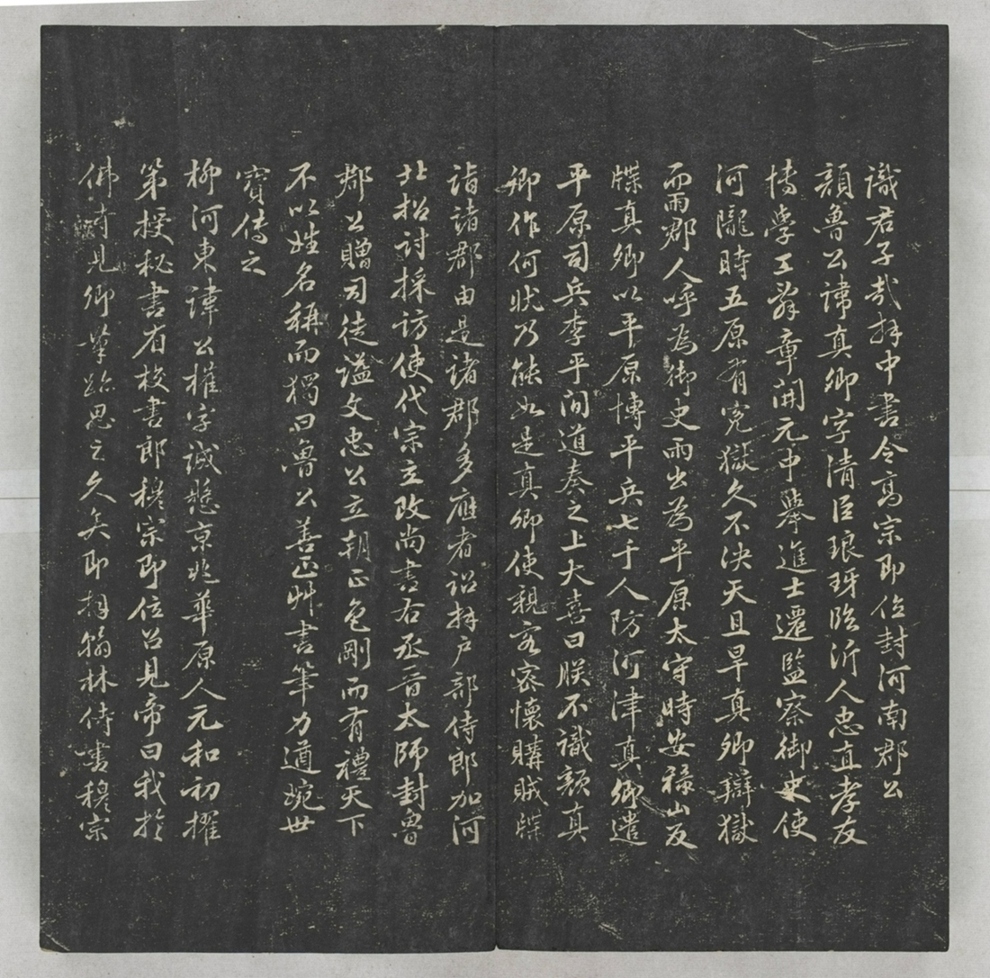 識君子哉拜中書令高宗即位封河南郡公
顏魯公諱真卿字清臣琅琊臨沂人忠直孝友
博學工辭章開元中舉進士遷監察御史使
河隴時五原有冤獄久不決天且旱真卿辯獄
而雨郡人呼為御史雨出為平原太守時安祿山反
牒真卿以平原博平兵七千人防河津真卿遣
平原司兵李平間道奏之上大喜曰朕不識顏真
卿作何狀乃能如是真卿使親客密懷購賊牒
詣諸郡由是諸郡多應者詔拜戶部侍郎加河
北招討採訪使代宗立改尚書右丞晉太師封魯
郡公贈司徒謚文忠公立朝正色剛而有禮天下
不以姓名稱而獨曰魯公善正艸書筆力遒婉世
寶傳之
柳河東諱公權字誠懸京兆華原人元和初擢
第授秘書省校書郎穆宗即位召見帝曰我於
佛寺見卿筆跡思之久矣即拜翰林侍書穆宗